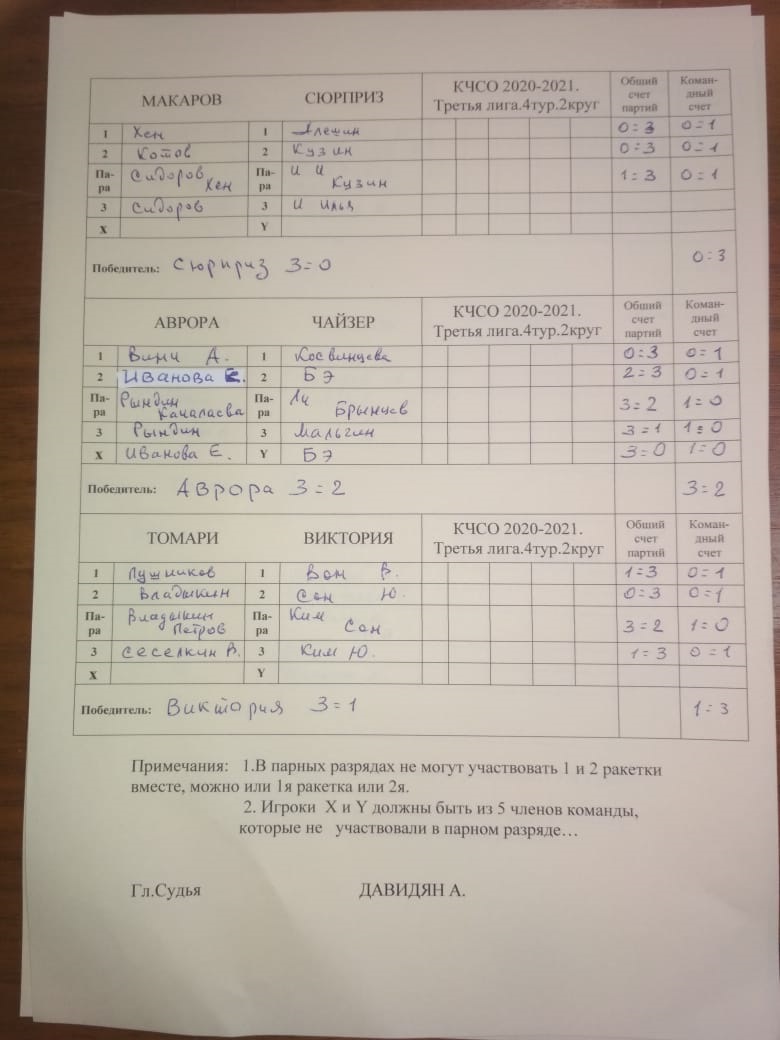 МАКАРОВ СЮРПРИЗ КЧСО 2020-2021. Третья лига.4тур.2круг Общий счет партий Коман-дный счет
1 Хен 1 Алешин 0=3 0=1
2 Котов 2 Кузин 0=3 0=1
Па-ра Сидоров Хен Па-ра И И Кузин 1=3 0=1
3 Сидоров 3 И Илья
X Y
Победитель: Сюрприз 3=0 0=3
АВРОРА ЧАЙЗЕР КЧСО 2020-2021. Третья лига.4тур.2круг Общий счет партий Коман-дный счет
1 А. 1 Косвинцева 0=3 0=1
2 Иванова Е. 2 БЭ 2=3 0=1
Па-ра Рындин Качалаева Па-ра Ли Брынцев 3=2 1=0
3 Рындин 3 Мальгин 3=1 1=0
X Иванова Е. Y БЭ 3=0 1=0
Победитель: Аврора 3=2 3=2
ТОМАРИ ВИКТОРИЯ КЧСО 2020-2021. Третья лига.4тур.2круг Общий счет партий Коман-дный счет
1 Лушников 1 Вон В. 1=3 0=1
2 Владыкин 2 Сон Ю. 0=3 0=1
Па-ра Владыкин Петров Па-ра Ким Сон 3=2 1=0
3 Сеселкин В. 3 Ким Ю. 1=3 0=1
X Y
Победитель: Виктория 3=1 1=3
Примечания: 1.В парных разрядах не могут участвовать 1 и 2 ракетки
вместе, можно или 1я ракетка или 2я.
2. Игроки X и Y должны быть из 5 членов команды,
которые не участвовали в парном разряде…
Гл.Судья ДАВИДЯН А.